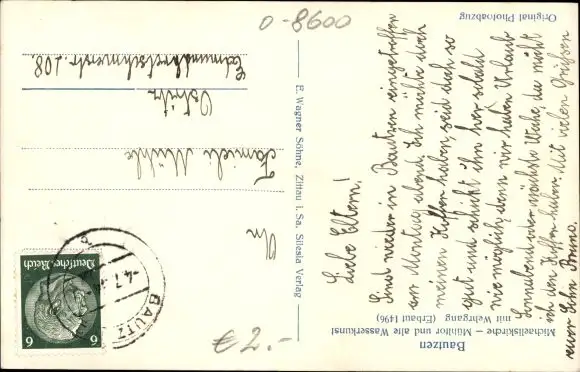 O-8600
Original Photoabzug
Liebe Eltern!
Sind wieder in Bautzen eingetroffen
am Montag abend. Ich möchte doch
meinen Koffer haben, seid doch so
gut und schickt ihn her sobald
wie möglich, denn wir haben Urlaub
Sonnabend oder nächste Woche, da möcht
ich den Koffer haben. Mit vielen Grüßen
euer Sohn Bruno.
Bautzen
Michaeliskirche – Mühltor und alte Wasserkunst
mit Wehrgang (Erbaut 1496)
E. Wagner Söhne, Zittau i. Sa. Silesia Verlag
An
Familie Mühle
Ostritz
Edmundkretschmerstr. 208.
Deutsches Reich
6 6
BAUTZ
-4.7.
€ 2.-